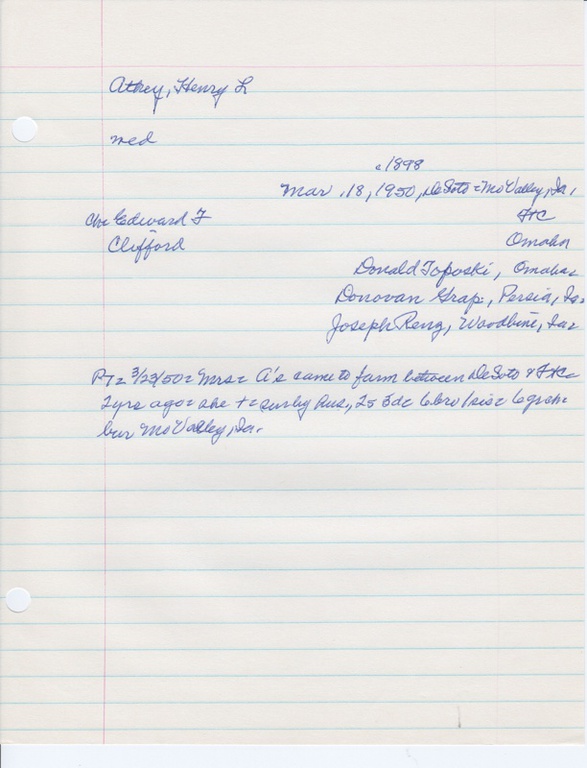 Attey, Henry L
med
c1898
Mar. 18, 1950, DeSoto = Mo Valley, Ia.
Ch = Edward F
FtC
Clifford
Omaha
Donald Toposki, Omaha
Donovan Grap, Persia, Ia.
Joseph Reng, Woodbine, Ia=
PT = 3/23/50 = Mrs = A's came to farm between DeSoto & FtC =
2yrs ago = she += surby hus, 2s 3d = 6bro 1sis = 6grch
bur Mo Valley, Ia.